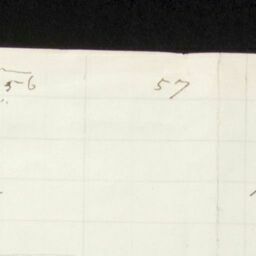 56 57